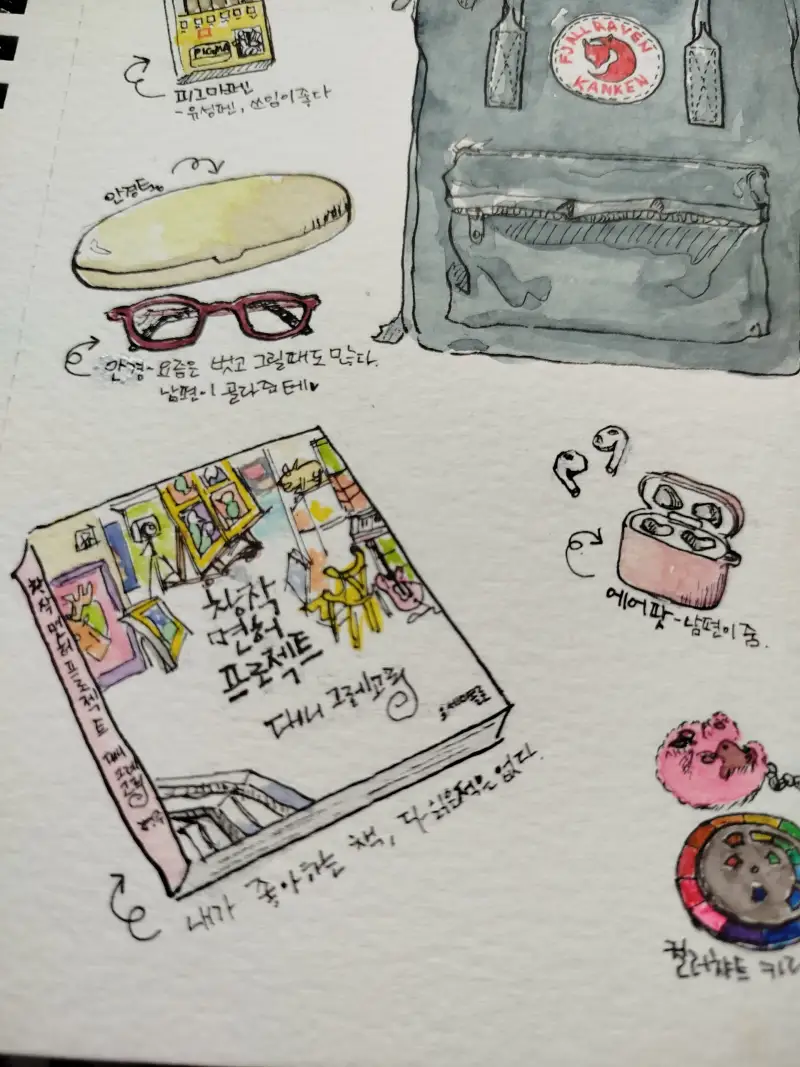 PIGMA
피그마펜
-유성펜, 쓰임이 좋다
FJALLRAVEN
KANKEN
안경테
안경-요즘은 벗고 그릴때도 많다.
남편이 골라줌 테♥
창작
면허
프로젝트
대니 그레고리
세미콜론
창작면허프로젝트 대니 그레고리
내가 좋아하는 책, 다 읽은적은 없다.
에어팟-남편이 줌.
컬러챠트 키